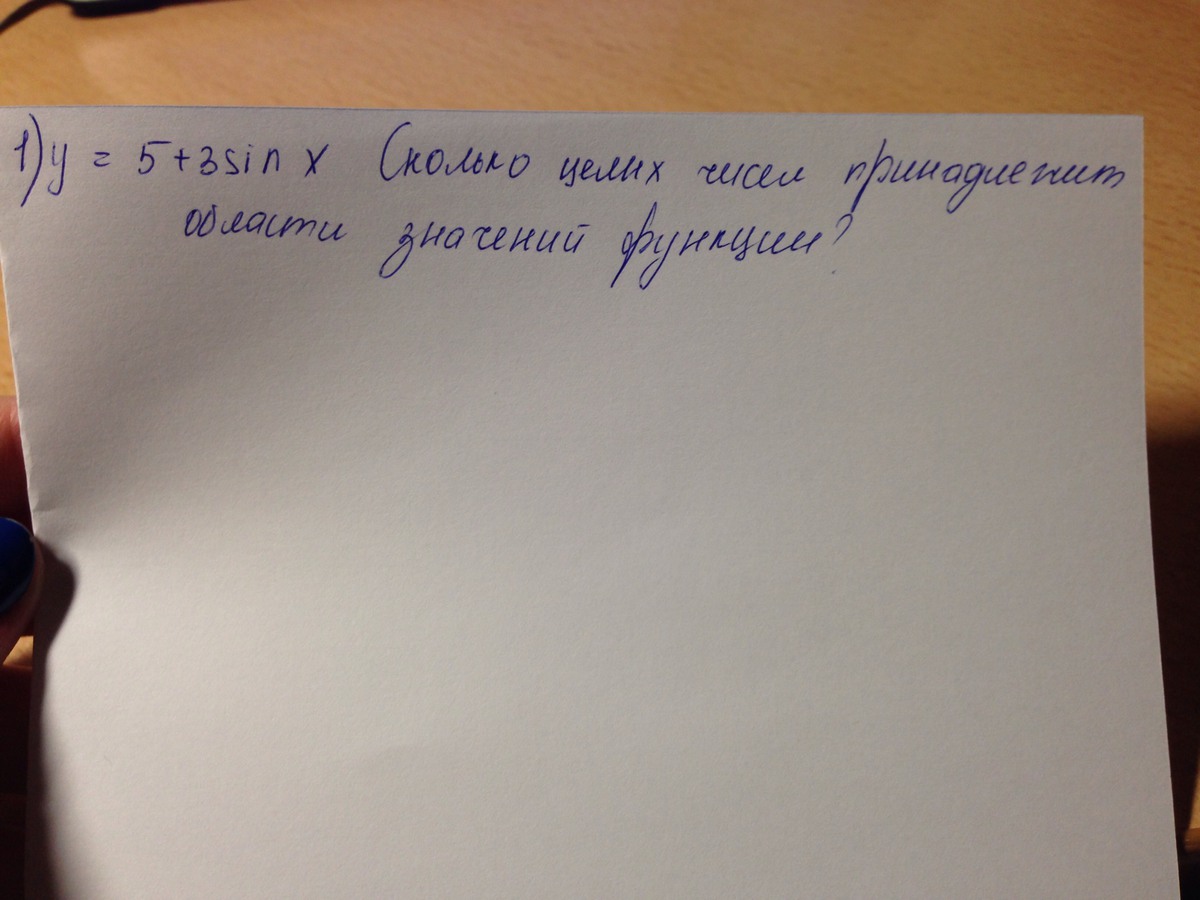 1) y = 5+3sin x Сколько целих чисел принадлежит
области значений функции?